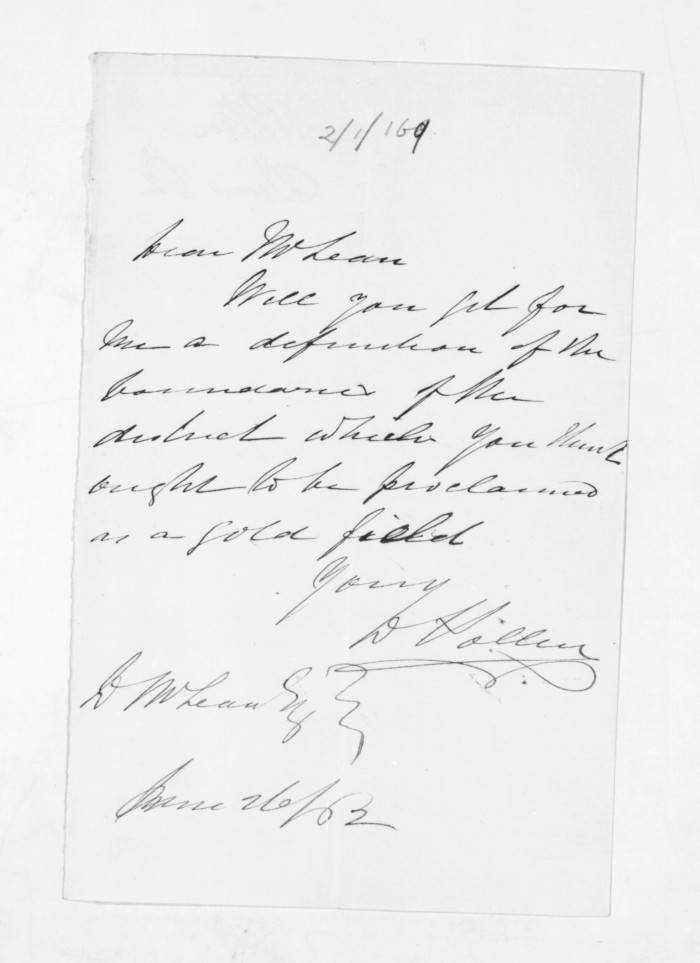 2/1/169
Dear McLean
Will you get for
me a definition of the
boundaries of the
district which you think
ought to be proclaimed
as a gold field
Yours
D
D McLean Esq
June 26/62